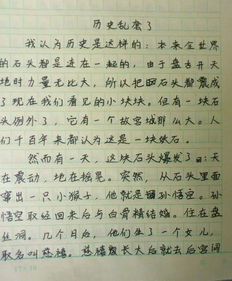 历史乱套了
我认为历史是这样的：本来全世界
的石头都是连在一起的，由于盘古开天
地时力量无比大，所以把石头都震成
了现在我们看见的小块块。但有一块石
头例外了，它有一个故宫城那么大。人
们千百年来都认为这是一块铁石。
然而有一天，这块石头爆发了：天
在震动，地在摇晃。突然，从石头里面
窜出一只小猴子，他就是孙悟空。孙
悟空取经回来后与白骨精结婚。住在盘
丝洞。几个月后，他们生了一个女儿，
取名叫慈禧。慈禧长大后就去后宫闹